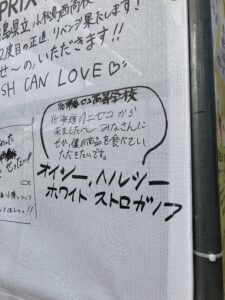 PRIX
島県立小松島西高校
2度目の正直、リベンジ果たします!
せ〜の、いただきます!!
SH CAN LOVE♡
高等学校
北海道のニセコから
来ましたへ みなさんに
ぜひ、僕の商品を食べてい
ただきたいです。
オイシー、ヘルシー
ホワイト ストロガノフ